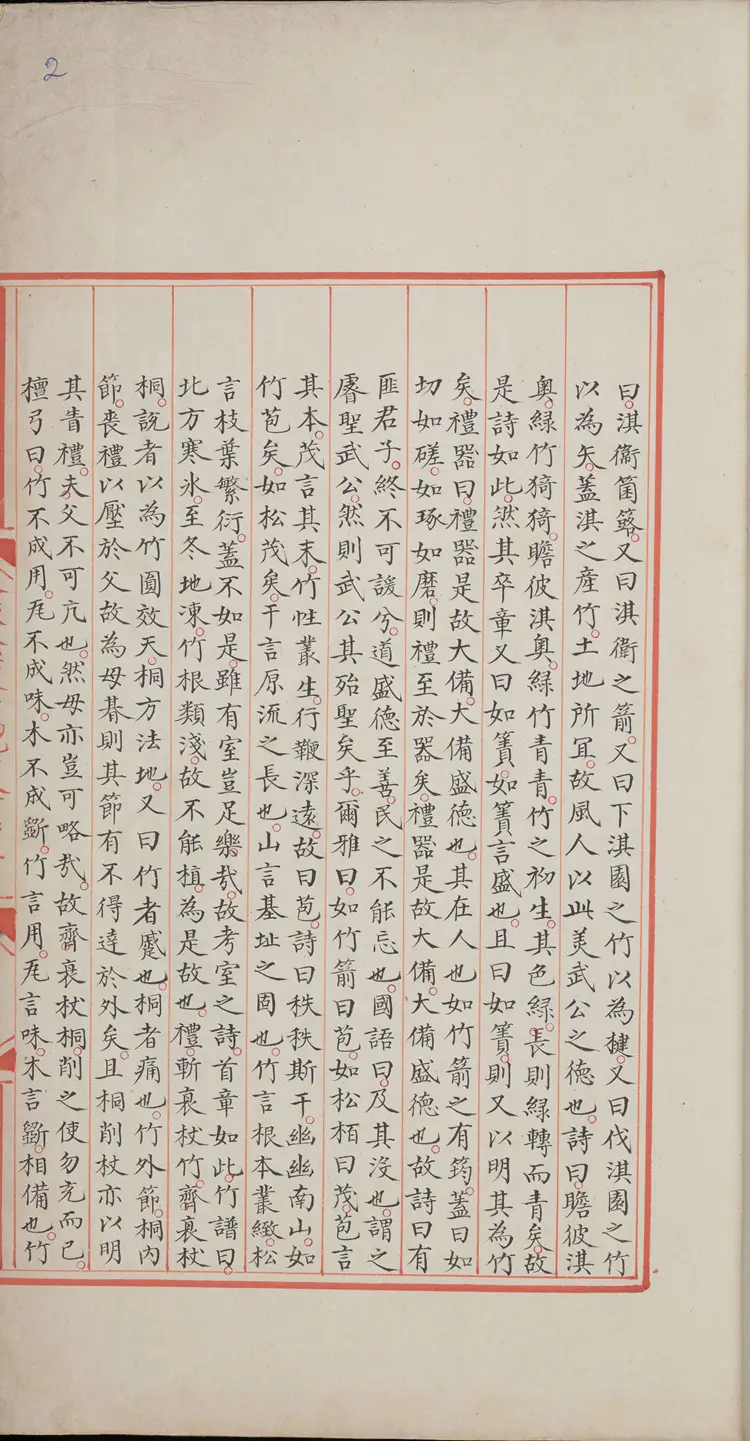 2
曰淇衞箘簬又曰淇衞之箭又曰下淇園之竹以為楗又曰伐淇園之竹
以為矢蓋淇之產竹土地所冝故風人以此美武公之德也詩曰瞻彼淇
奥綠竹猗猗瞻彼淇奥綠竹青青竹之初生其色綠長則綠轉而青矣故
是詩如此然其卒章又曰如簀如簀言盛也且曰如簀則又以明其為竹
矣禮器曰禮器是故大備大備盛德也其在人也如竹箭之有筠蓋曰如
切如磋如琢如磨則禮至於器矣禮器是故大備大備盛德也故詩曰有
匪君子終不可諼兮道盛德至善民之不能忘也國語曰及其沒也謂之
睿聖武公然則武公其殆聖矣乎爾雅曰如竹箭曰苞如松栢曰茂苞言
其本茂言其末竹性叢生行鞭深遠故曰苞詩曰秩秩斯干幽幽南山如
竹苞矣如松茂矣干言原流之長也山言基址之固也竹言根本叢緻松
言枝葉繁衍蓋不如是雖有室豈足樂哉故考室之詩首章如此竹譜曰
北方寒氷至冬地凍竹根類淺故不能植為是故也禮斬衰杖竹齊衰杖
桐說者以為竹圓效天桐方法地又曰竹者蹙也桐者痛也竹外節桐內
節喪禮以壓於父故為母朞則其節有不得達於外矣且桐削杖亦以明
其眚禮夫父不可亢也然母亦豈可略哉故齊衰杖桐削之使勿充而已
檀弓曰竹不成用瓦不成味木不成斵竹言用瓦言味木言斵相備也竹